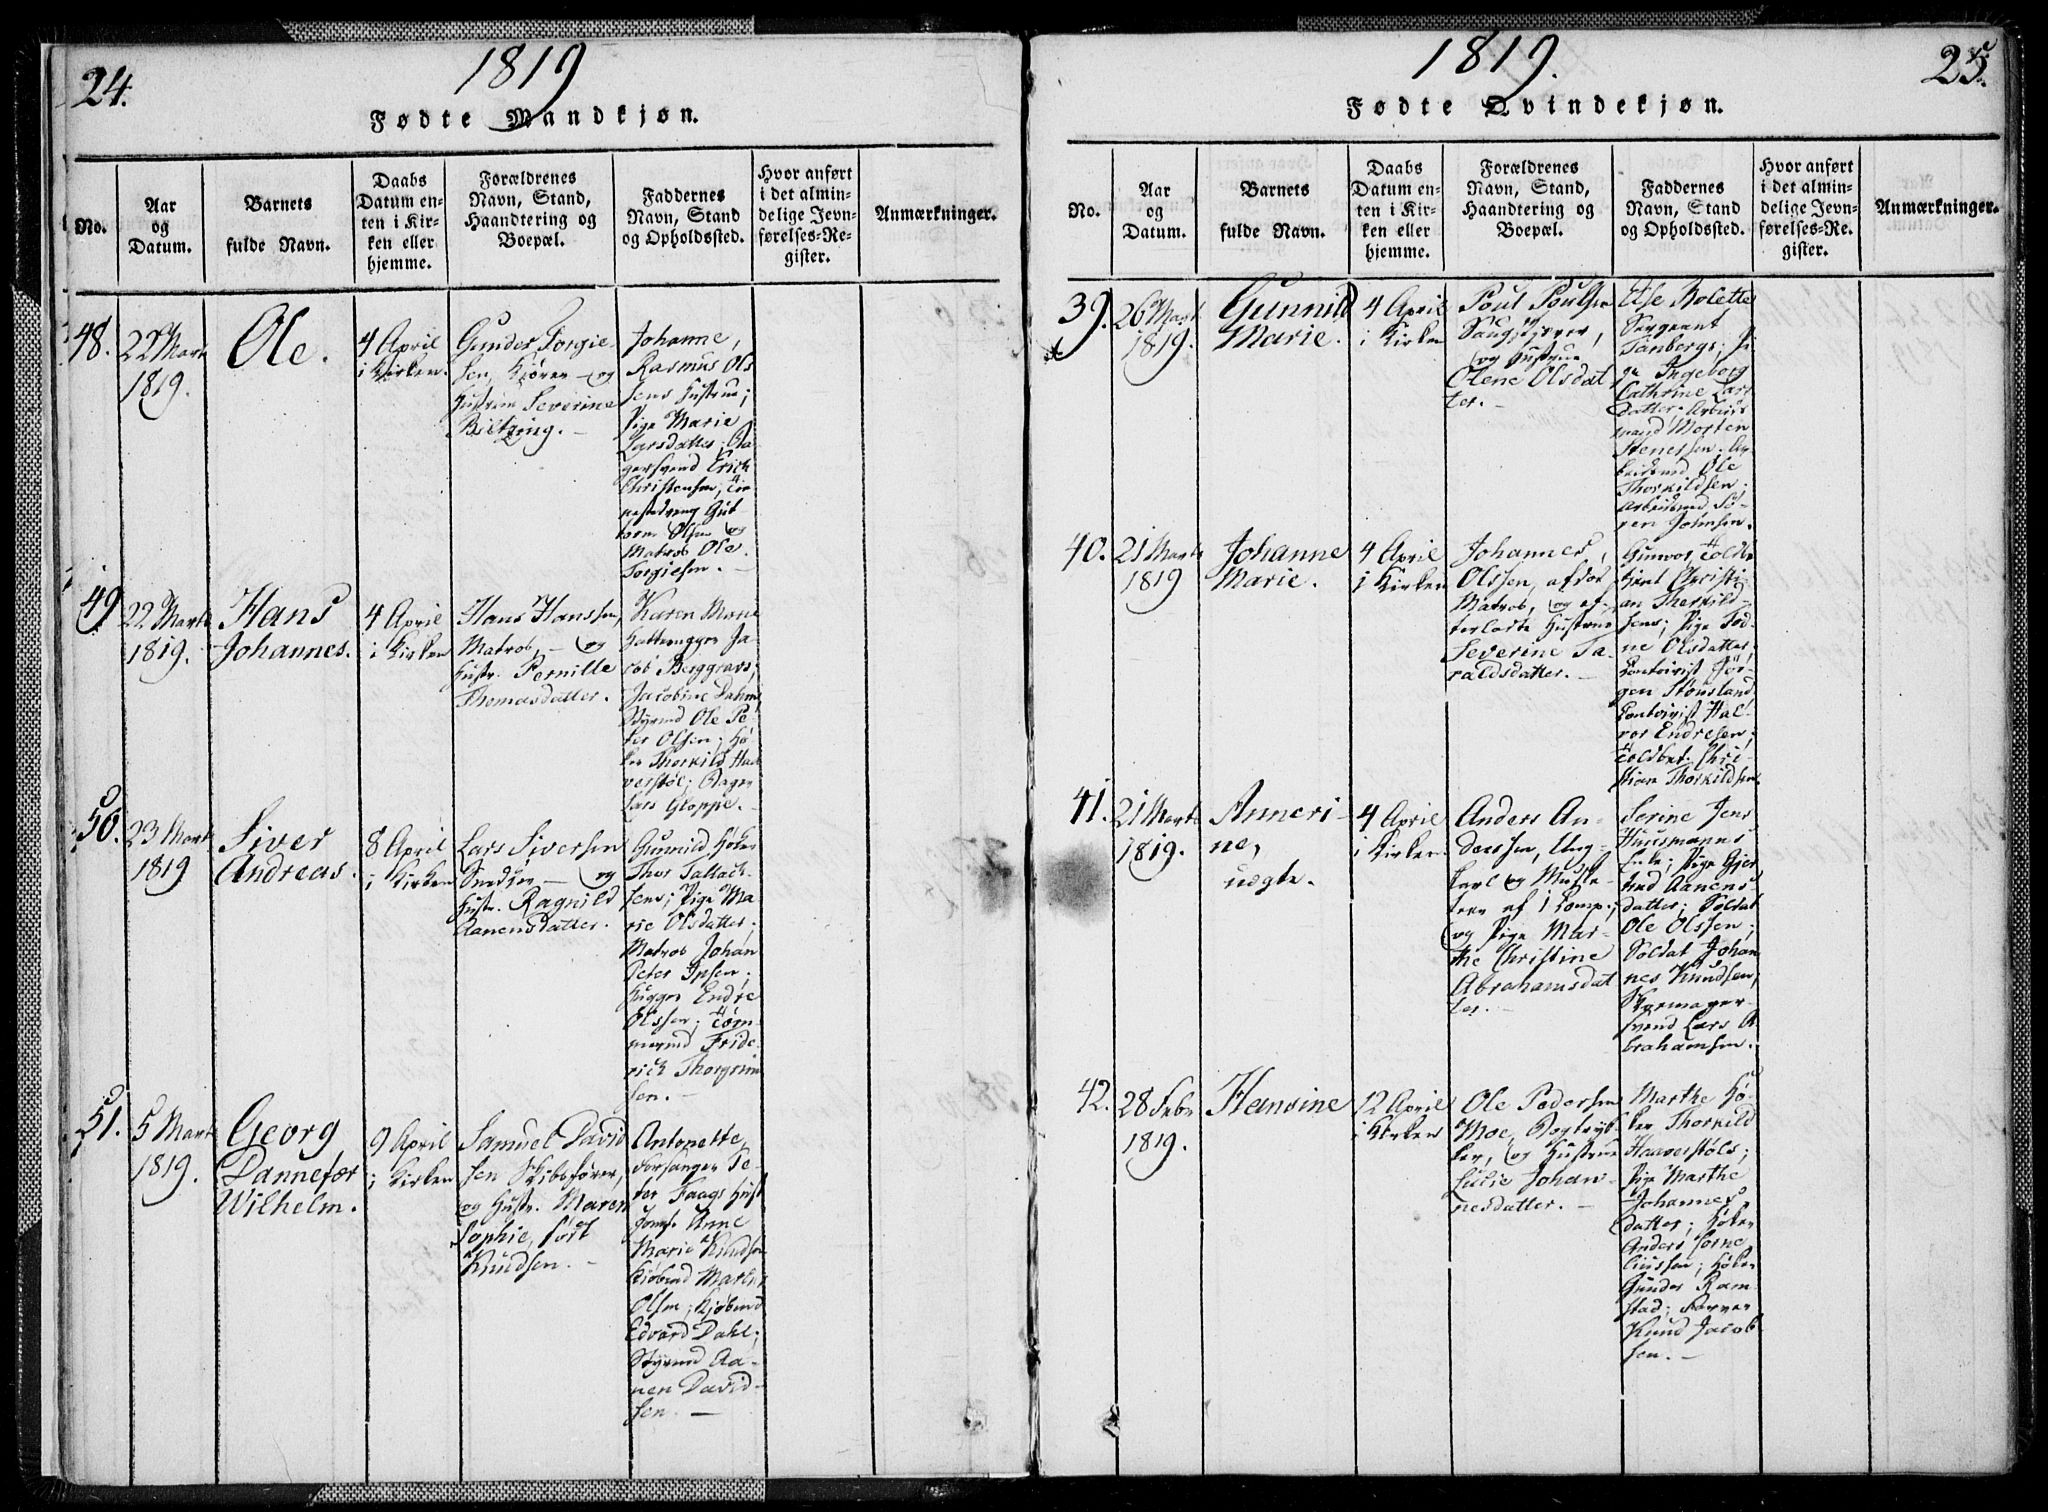 24.
1819
Fødte Mandkjøn.
No.
Aar
og
Datum.
Barnets
fulde Navn.
Daabs
Datum en-
ten i Kir-
ken eller
hjemme.
Forældrenes
Navn, Stand,
Haandtering og
Boepæl.
Faddernes
Navn, Stand
og Opholdssted.
Hvor anført
i det almin-
delige Jevn-
førelses-Re-
gister.
Anmærkninger.
48.
22 Marts
1819.
Ole.
4 April
i Kirken.
Gunder Torgie-
sen, Kjører - og
Hustrue Severine
Johanne,
Rasmus Ols
sens Hustrue;
Pige Marie
Larsdatter; Ba
gersvend Erich
Christensen;
Gut-
torm Olsen og
Matros Ole
Torgiesen. -
49
22 Marts
1819.
Hans
Johannes.
4 April
i Kirken
Hans Hanssen,
Matros, - og
Hustr. Pernille
Thomasdatter.
Karen Marie
Ja-
cob Berggravs;
Jacobine Dahm
Styrmd Ole Pe-
ter Olsen; Hø-
ker Thorkild Haa
verstøl; Bager
Lars Gloppe. -
50.
23 Marts
1819
Siver
Andreas.
8 April
i Kirken
Lars Siversen
Snedker - og
Hustr. Ragnild
Aanensdatter.
Gunnild Høker
Thor Tallach-
sens; Pige Ma-
rie Olsdatter;
Matros Johan
Peter Ipsen;
Hugger Endre
Olssen; Tøm-
mermd Fride-
rich Thorgrim
sen. -
51.
5 Marts
1819.
Georg
Dannefær
Wilhelm.
9 April
i Kirken
Samuel David
sen Skibsfører,
og Hustr. Maren
Sophie, født
Knudsen. -
Antonette,
Forsanger Pe-
ter Faags Hust
Jomfr Anne
Marie Knudsen
Kjøbmd Martin
Olsen; Kjøbmd
Edvard Dahl;
Styrmd Aa-
nen David-
sen. -
1819.
25.
Fødte Qvindekjøn.
No.
Aar
og
Datum.
Barnets
fulde Navn.
Daabs
Datum en-
ten i Kir-
ken eller
hjemme.
Forældrenes
Navn, Stand,
Haandtering og
Boepæl.
Faddernes
Navn, Stand
og Opholdssted.
Hvor anført
i det almin-
delige Jevn-
førelses-Re-
gister.
Anmærkninger.
39.
26 Marts
1819.
Gunnild
Marie.
4 April
i Kirken
Poul Poulsen
og Hustrue
Olene Olsdat
ter. -
Else Bolette
Sergeant
Tanbergs; Pi
ge Ingeborg
Cathrine Lars
datter; Arbeids
mand Morten
Stenersen; Ar
beidsmd Ole
Thorkildsen;
Arbeidsmd Sø-
ren Johnsen.
40.
21 Marts
1819
Johanne
Marie.
4 April
i Kirken
Johannes
Olssen, afdød
Matros, og ef-
terladte Hustrue
Severine Ta-
raldsdatter. -
Gunvor, Told-
betjent Christi-
an Therkild-
sens; Pige Tod-
ne Olsdatter;
Contorist Jør-
gen Stousland
Contorist Hal-
vor Endresen;
Toldbet. Chri-
stian Thorkildsen
41.
21 Marts
1819.
Anneri-
ne,
uægte.
4 April
i Kirken.
Anders An-
derssen, Ung-
karl og Muske-
teer af 1 Comp.,
og Pige Mar-
the Christine
Abrahamsdat
ter. -
Serine Jens
Huusmanns
Enke; Pige Gjer
trud Aanens-
datter; Soldat
Ole Olssen;
Soldat Johan
nes Knudsen,
Skomager-
svend Lars A
brahamsen.
42.
28 Febr
1819.
Hansine
12 April
i Kirken
Ole Pedersen
Moe, Bogtryk-
ker, og Hustrue
Lucie Johan-
nesdatter. -
Marthe Hø-
ker Thorkild
Haaverstøls;
Pige Marthe
Johannes
datter; Høker
Anders Corne
liussen; Høker
Gunder Ram-
stad; Farver
Knud Jacob
sen. -